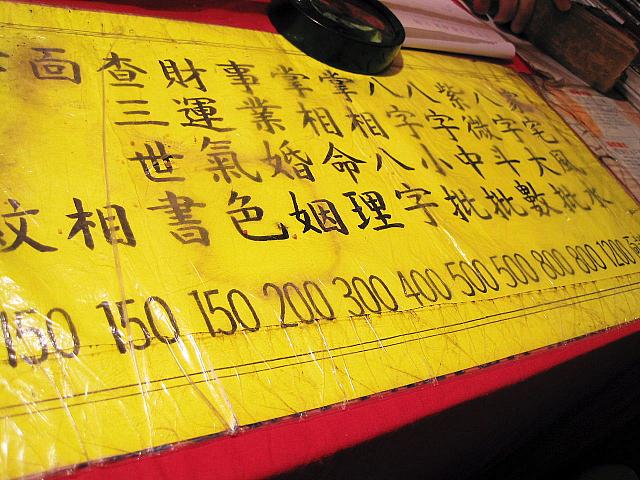 家宅風水 1200
八字大批 800
紫微斗數 800
八字中批 500
八字小批 500
掌相八字 400
掌相命理 300
事業婚姻 200
財運氣色 150
查三世書 150
面相 150
紋